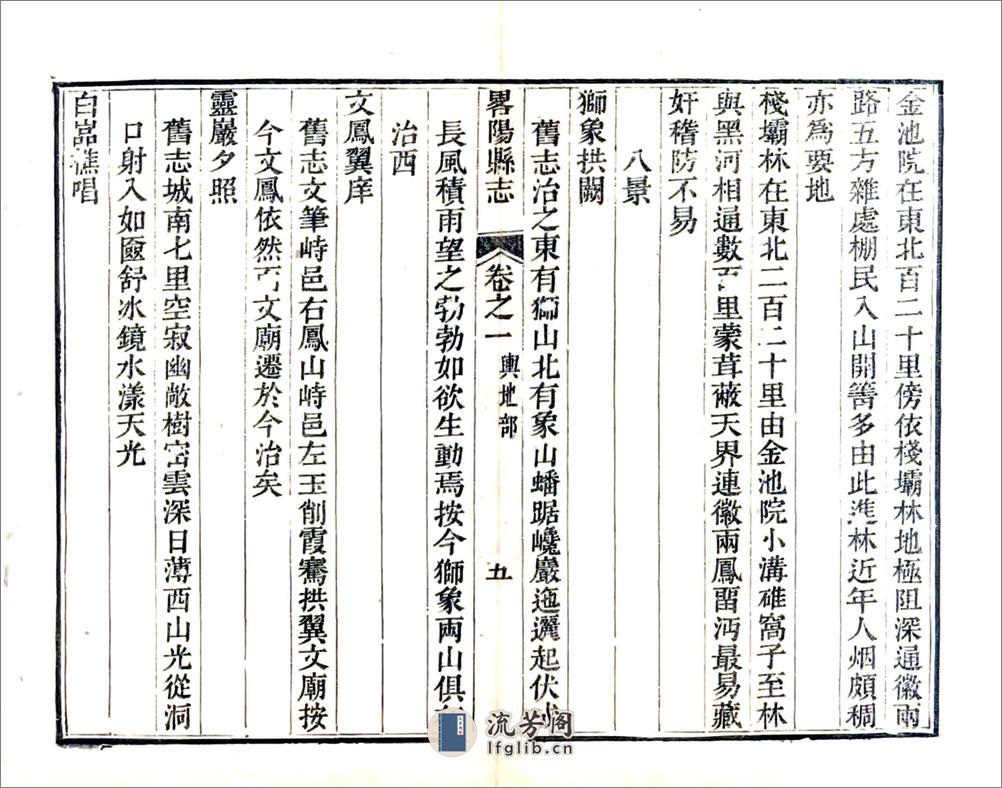 金池院在東北百二十里傍依棧壩林地極阻深通徽兩
路五方雜處棚民入山開籌多由此進林近年人烟頗稠
亦為要地
棧壩林在東北二百二十里由金池院小溝碓窩子至林
與黑河相通數百里蒙茸蔽天界連徽兩鳳畱沔最易藏
奸稽防不易
八景
獅象拱闕
舊志治之東有獅山北有象山蟠踞巉巖迤邐起伏
畧陽縣志
卷之一
輿地部
五
長風積雨望之勃勃如欲生動焉按今獅象兩山俱
治西
文鳳翼庠
舊志文筆峙邑右鳳山峙邑左玉削霞騫拱翼文廟按
今文鳳依然而文廟遷於今治矣
靈巖夕照
舊志城南七里空寂幽敞樹密雲深日薄西山光從洞
口射入如匳舒冰鏡水漾天光
白嵓樵唱
流芳閣
lfglib.cn